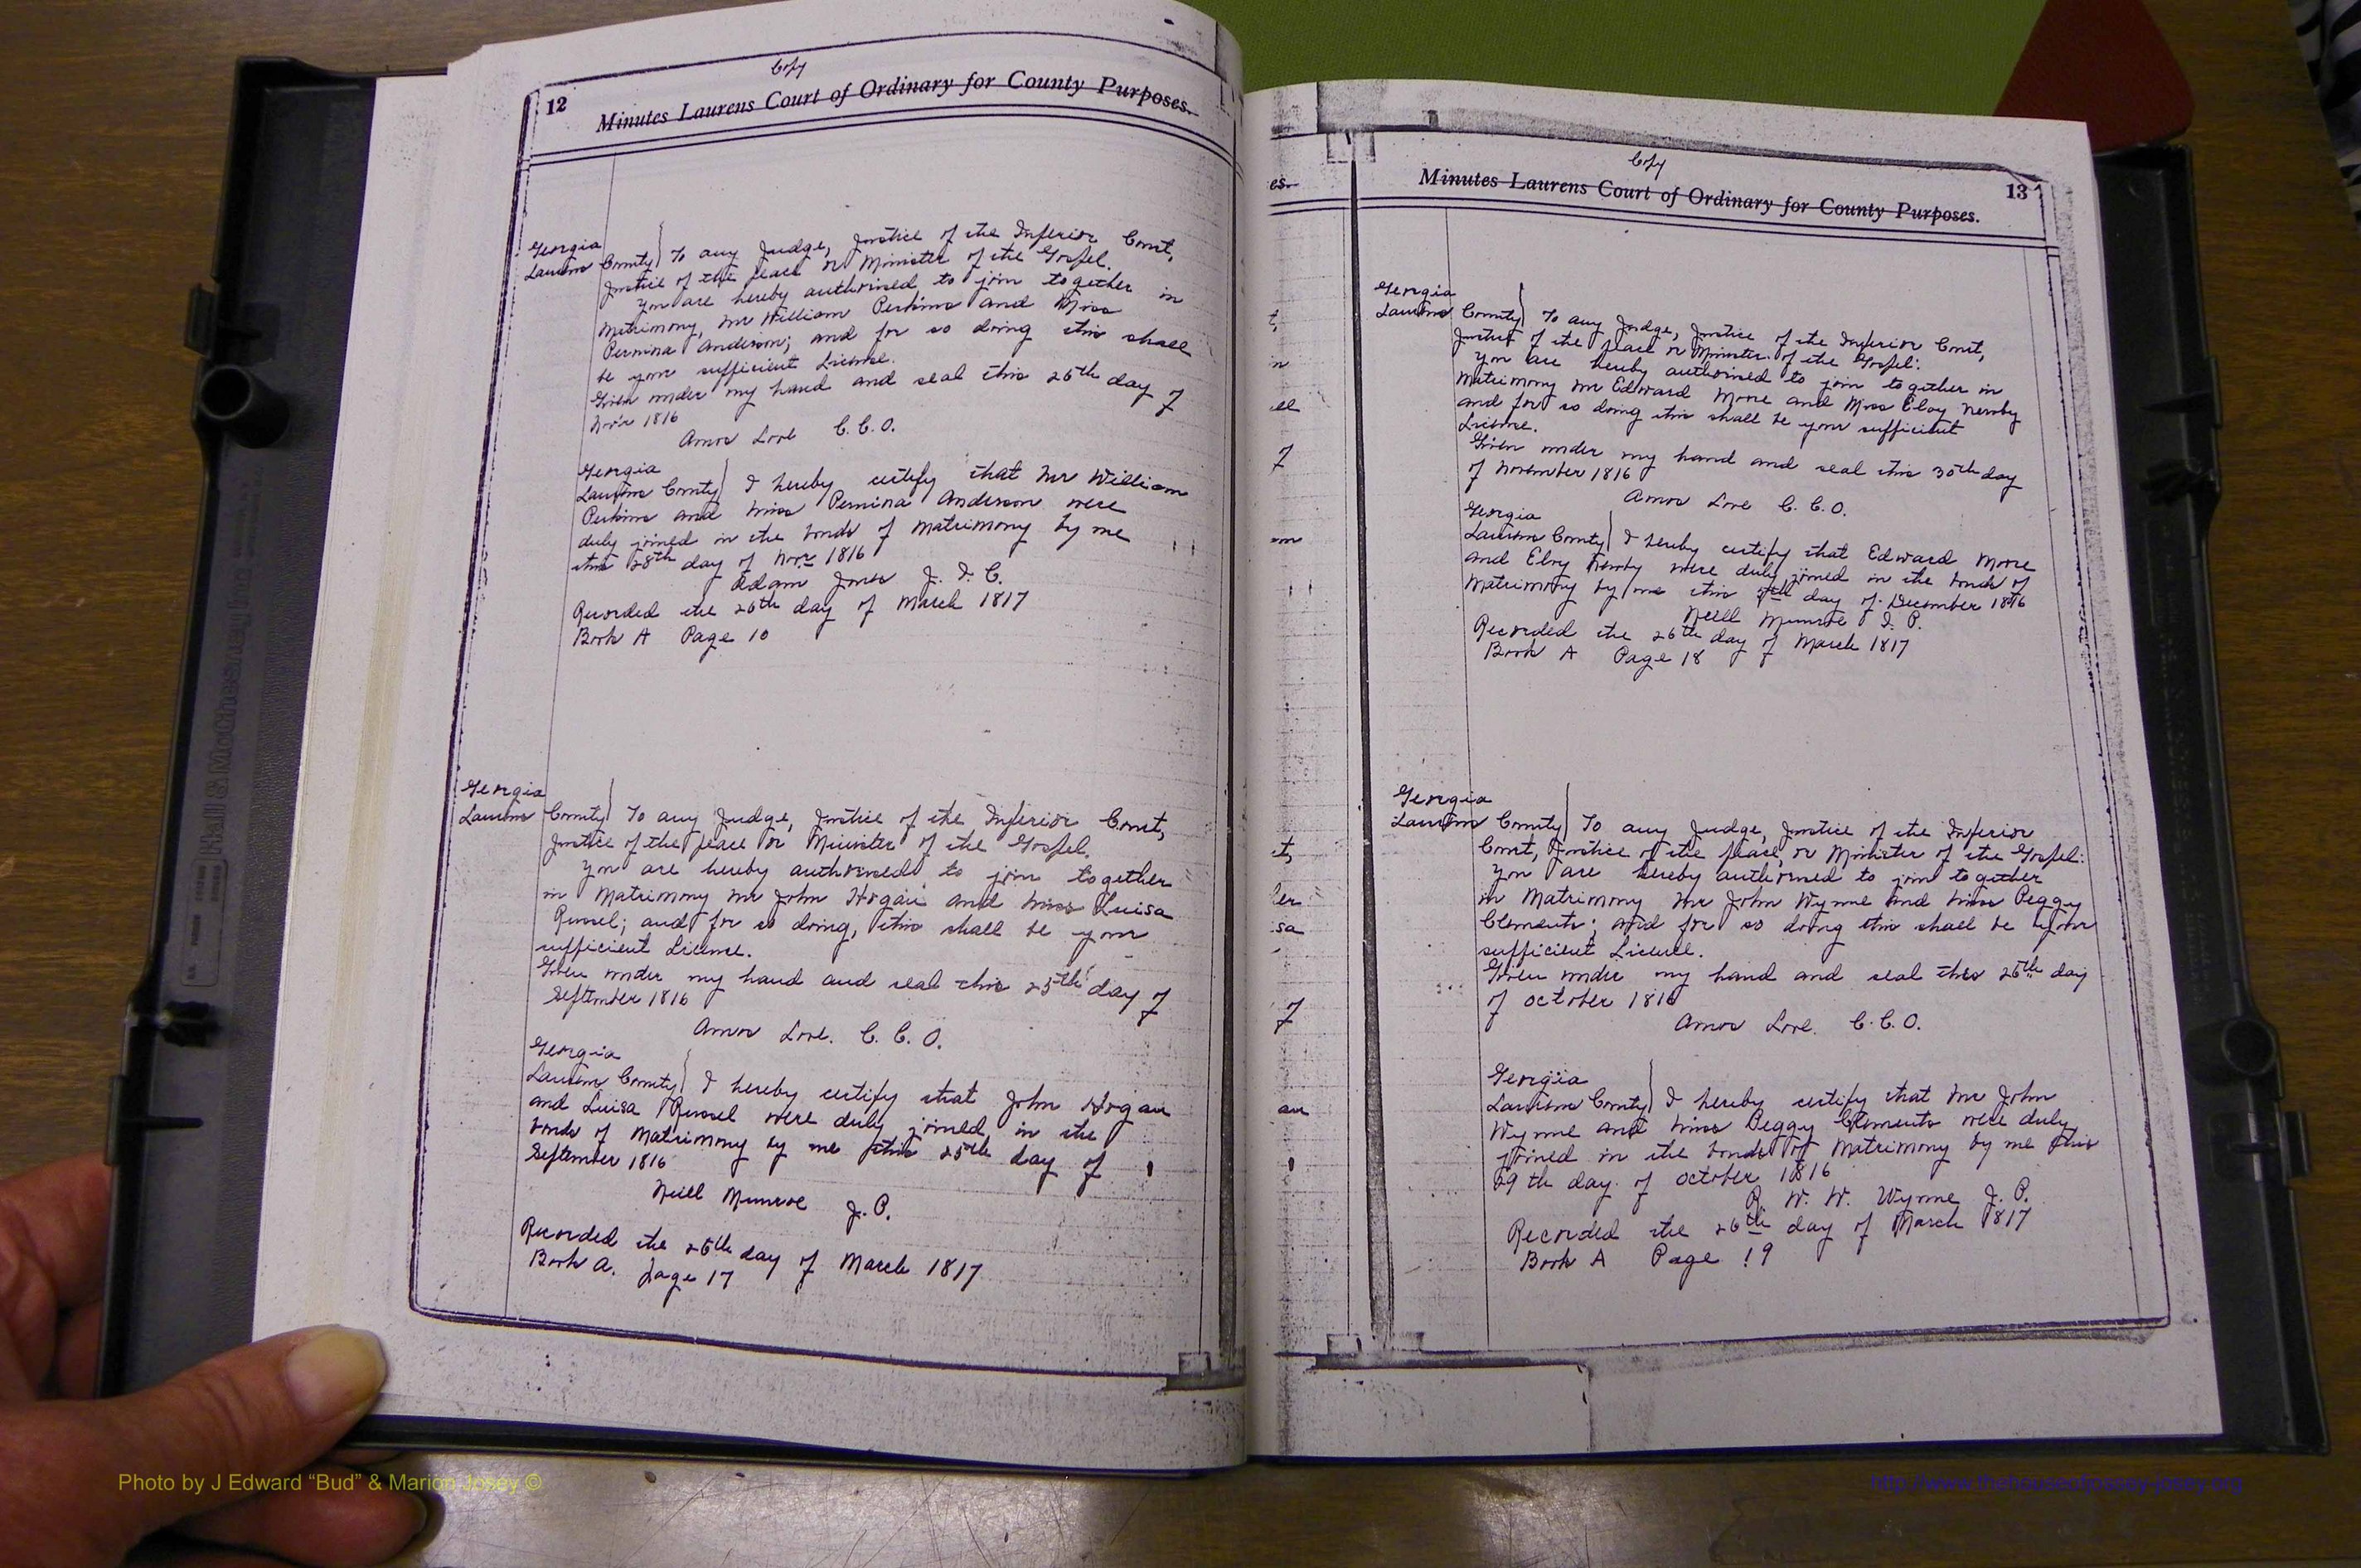 12
Copy
Minutes Laurens Court of Ordinary for County Purposes.
Georgia
Laurens County) To any Judge, Justice of the Inferior Court,
Justice of the peace or Minister of the Gospel.
You are hereby authorised to join together in
Matrimony, Mr William Perkins and Miss
Permina Anderson; and for so doing this shall
be your sufficient License.
Given under my hand and seal this 26th day of
Nov'r 1816
Amos Love C. C. O.
Georgia
Laurens County) I hereby certify that Mr William
Perkins and Miss Permina Anderson were
duly joined in the bonds of Matrimony by me
this 28th day of Novr 1816
Adam Jones J. I. C.
Recorded the 26th day of March 1817
Book A Page 10
Georgia
Laurens County) To any Judge, Justice of the Inferior Court,
Justice of the peace or Minister of the Gospel.
You are hereby authorised to join together
in Matrimony Mr John Hogan and Miss Luisa
Russel; and for so doing, this shall be your
sufficient License.
Given under my hand and seal this 25th day of
September 1816
Amos Love. C. C. O.
Georgia
Laurens County) I hereby certify that John Hogan
and Luisa Russel were duly joined in the
bonds of Matrimony by me this 25th day of
September 1816
Neill Munroe J. P.
Recorded the 26th day of March 1817
Book A. page 17
es.
t,
in
ell
of
am
t,
her
sa
of
an
Copy
Minutes Laurens Court of Ordinary for County Purposes.
13
Georgia
Laurens County) To any Judge, Justice of the Inferior Court,
Justice of the peace or Minister of the Gospel:
You are hereby authorised to join together in
Matrimony Mr Edward More and Miss Eloy Newby
and for so doing this shall be your sufficient
License.
Given under my hand and seal this 30th day
of November 1816
Amos Love C. C. O.
Georgia
Laurens County) I hereby certify that Edward More
and Eloy Newby were duly joined in the bonds of
Matrimony by me this day of December 1816
Neill Munroe J. P.
Recorded the 26th day of March 1817
Book A Page 18
Georgia
Laurens County) To any Judge, Justice of the Inferior
Court, Justice of the peace, or Minister of the Gospel:
You are hereby authorised to join together
in Matrimony Mr John Wynne and Miss Peggy
Clements; and for so doing this shall be your
sufficient License.
Given under my hand and seal this 26th day
of October 1816
Amos Love. C. C. O.
Georgia
Laurens County) I hereby certify that Mr John
Wynne and Miss Peggy Clements were duly
joined in the bonds of Matrimony by me this
29th day of October 1816
R. W. W. Wynne J. P.
Recorded the 26th day of March 1817
Book A Page 19
Photo by J Edward “Bud” & Marion Josey ©
http://www.thehouseofjossey-josey.org